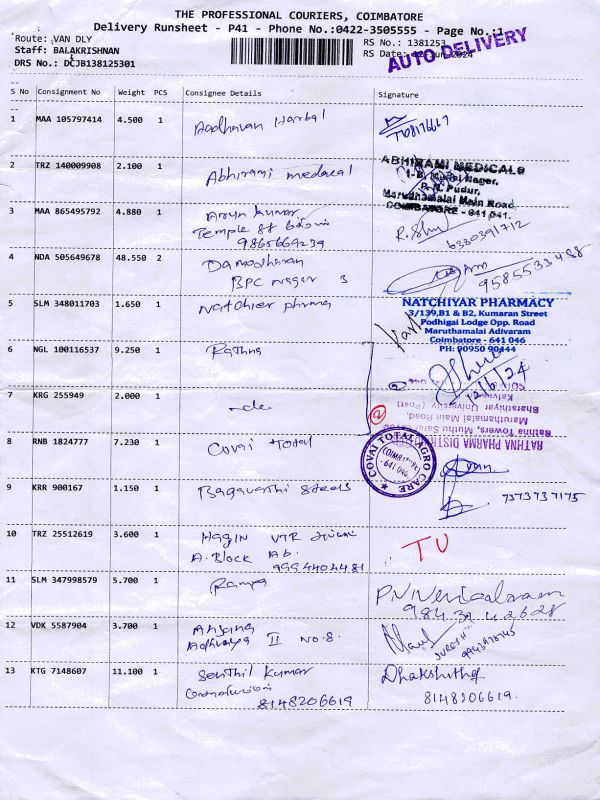 THE PROFESSIONAL COURIERS, COIMBATORE
Delivery Runsheet - P41 - Phone No.:0422-3505555 - Page No.:1
Route: VAN DLY
RS No.: 1381253
Staff: BALAKRISHNAN
RS Date: 12-Jun-2024
AUTO DELIVERY
DRS No.: DCJB138125301
S No Consignment No Weight PCS Consignee Details Signature
1 MAA 105797414 4.500 1 Aadhavan Harbal
2 TRZ 140009908 2.100 1 Abhirami medacal
ABHIRAMI MEDICALS
Maruthamalai Main Road,
COIMBATORE - 641 041.
3 MAA 865495792 4.880 1 Arun Kumar
Temple st
9865669239
6380391712
4 NDA 505649678 48.550 2 Damodharan
BPC nagar 3
9585533488
5 SLM 348011703 1.650 1 Natchier phrma
NATCHIYAR PHARMACY
3/139,B1 & B2, Kumaran Street
Podhigai Lodge Opp. Road
Maruthamalai Adivaram
Coimbatore - 641 046
PH: 90950 90444
6 NGL 100116537 9.250 1 Rathna
12/6/24
7 KRG 255949 2.000 1 -do-
2
Bharathiyar University (Post)
Maruthamalai Main Road,
Ratna Towers, Muthu
RATHNA PHARMA
8 RNB 1824777 7.230 1 Covai Total
COVAI TOTAL AGRO CARE
COIMBATORE
641 046
9 KRR 900167 1.150 1 Bagavathi Steels
7373737175
10 TRZ 25512619 3.600 1 Hagin VTR
A. Block
9994404481
TU
11 SLM 347998579 5.700 1 Rampa
9843742628
12 VDK 5587904 3.700 1 Anjana
Adhvaya II No.8.
SURESH
13 KTG 7148607 11.100 1 Senthil Kumar
8148206619
Dhakshitha
8148206619.